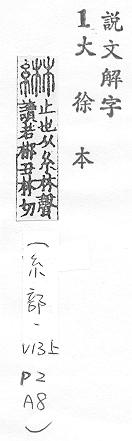 說文解字
1.大徐本
綝
止也从糸林聲
讀若郴丑林切
(糸部、
V13上
P2
A8)